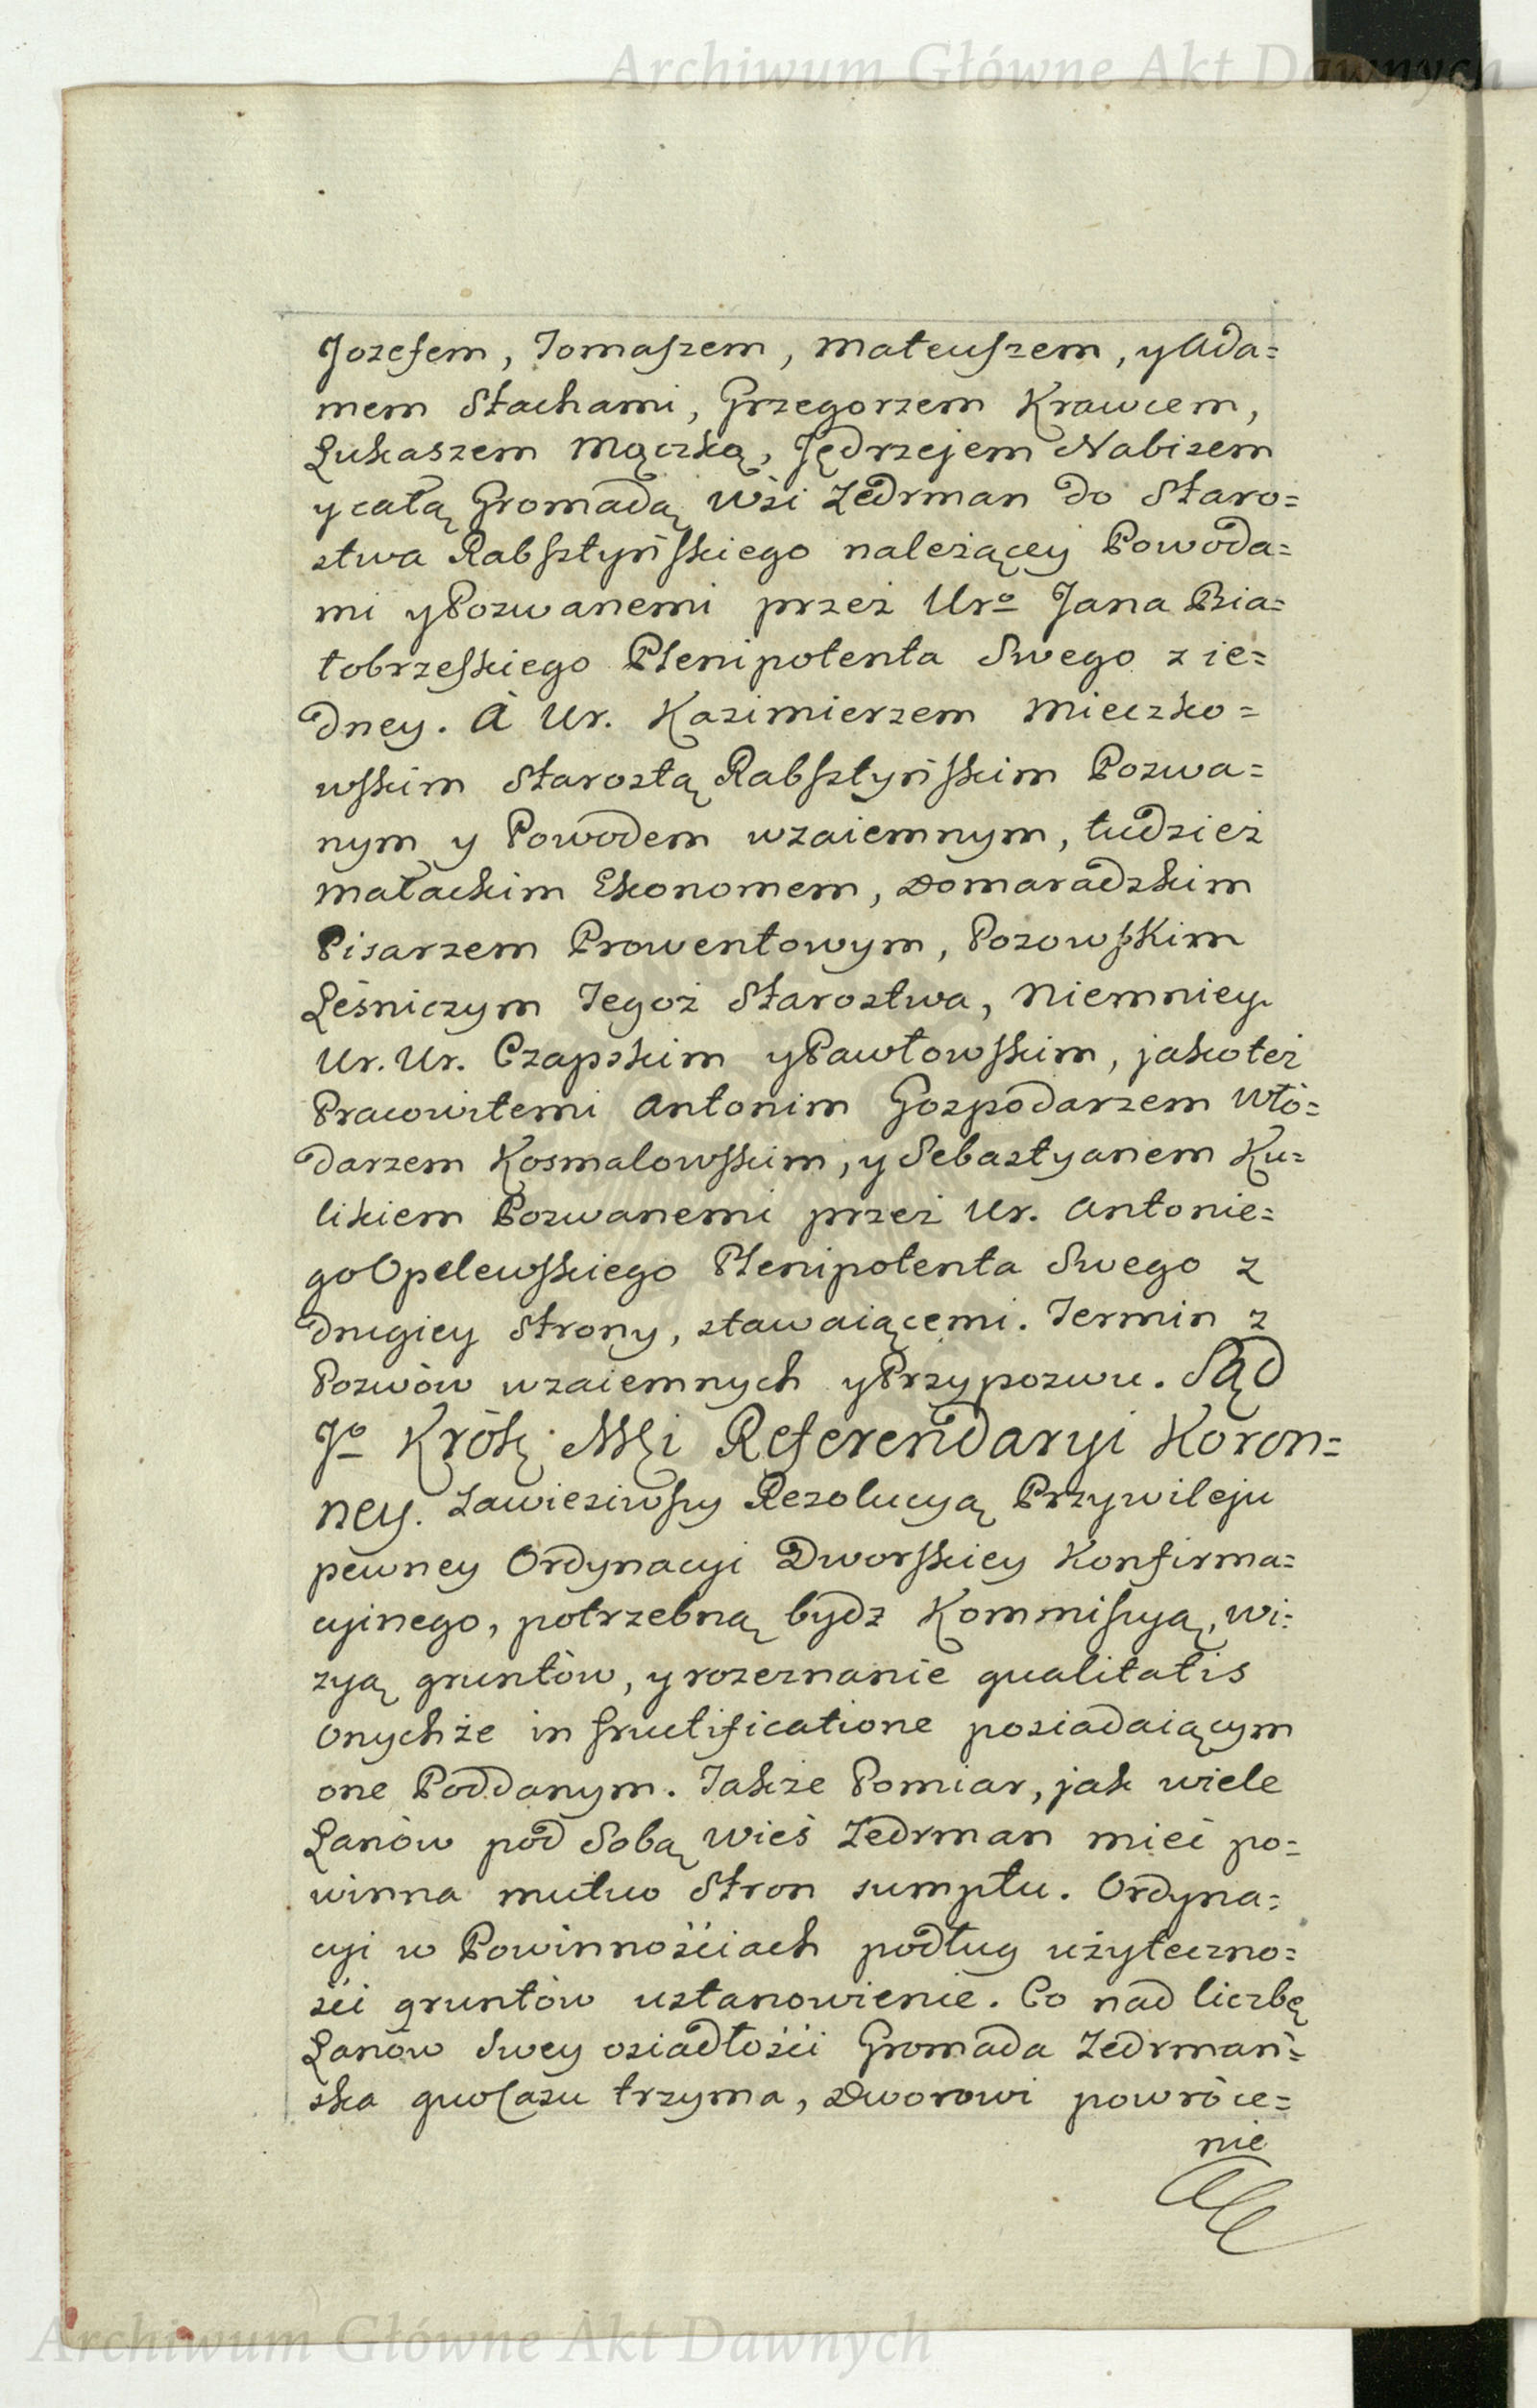 Archiwum Główne Akt Dawnych
Jozefem, Tomaszem, Mateuszem, y Ada=
mem Stachami, Grzegorzem Krawcem,
Łukaszem Mączką, Jędrzejem Nabizem
y całą Gromadą Wsi Zedrman do Staro=
stwa Rabsztyńskiego należącey Powoda=
mi y Pozwanemi przez Uro Jana Bia=
łobrzeskiego Plenipotenta Swego z ie=
dney. A Ur. Kazimierzem Mieczko=
wskim Starostą Rabsztyńskim Pozwa=
nym y Powodem wzaiemnym, tudzież
Małackim Ekonomem, Domaradzkim
Pisarzem Prowentowym, Pozowskim
Leśniczym Tegoż Starostwa, Niemniey
Ur. Ur. Czapskim y Pawłowskim, jakoteż
Pracowitemi Antonim Gospodarzem Wło=
darzem Kosmalowskim, y Sebastyanem Ku=
likiem Pozwanemi przez Ur. Antonie=
go Opelewskiego Plenipotenta Swego z
drugiey Strony, stawaiącemi. Termin z
Pozwów wzaiemnych y Przypozwu. Sąd
Jo Królę Mći Referendaryi Koron=
ney. Zawiesiwszy Rezolucyą Przywileju
pewney Ordynacyi Dworskiey Konfirma=
cyinego, potrzebną bydz Kommissyą, wi=
zyą gruntów, y rozeznanie qualitatis
onychże in fructificatione posiadaiącym
one Poddanym. Takze Pomiar, jak wiele
Łanów pod Sobą Wieś Zedrman mieć po=
winna mutuo Stron sumptu. Ordyna=
cyi w Powinnościach podług użyteczno=
ści gruntów ustanowienie. Co nad liczbę
Łanów Swey osiadłości Gromada Zedrmań=
ska gwołasu trzyma, Dworowi powróce=
nie
Archiwum Główne Akt Dawnych